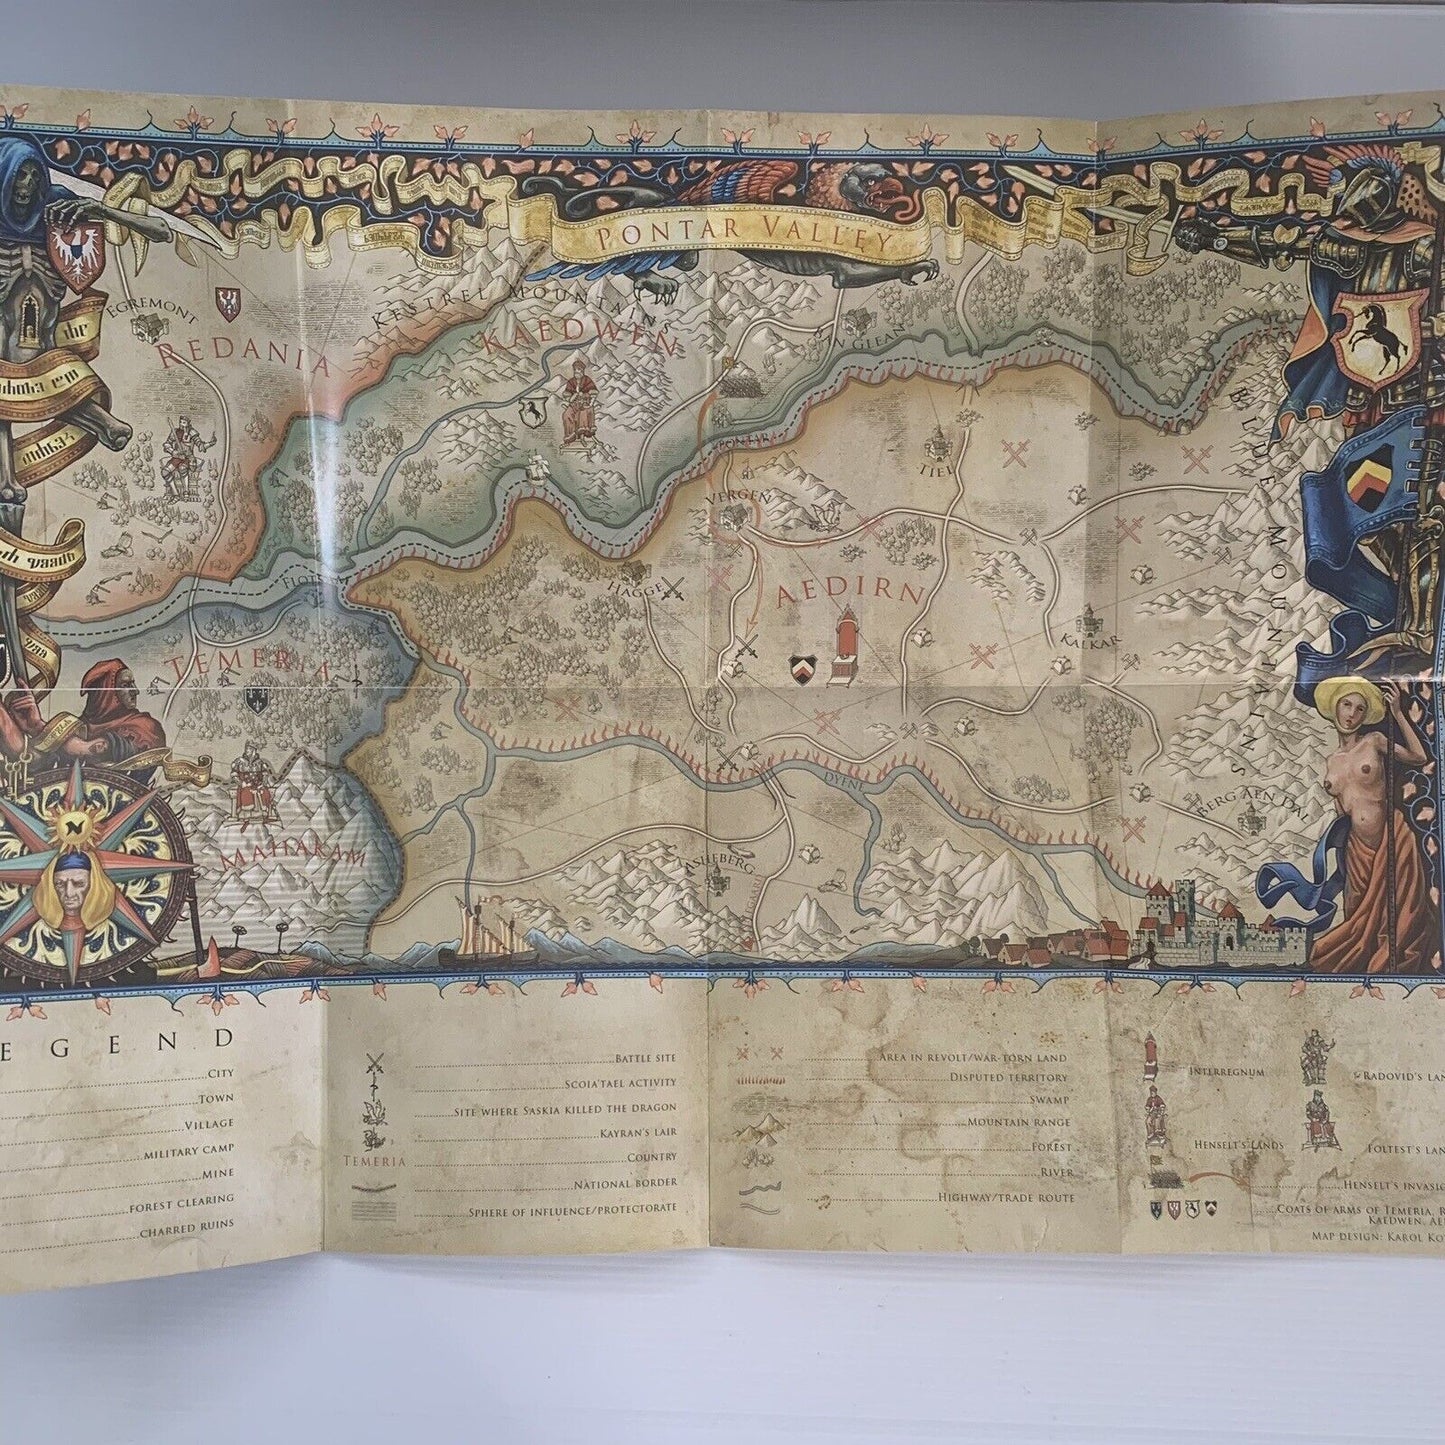 PONTAR VALLEY
EGREMONT
REDANIA
KESTREL MOUNTAINS
KAEDWEN
PONTAR
VERGEN
BLUE MOUNTAINS
FLOTSAM
HAGGE
AEDIRN
KALKAR
TEMERIA
DYFNE
BERG AEN DAL
MAHAKAM
N
EGEND
CITY
TOWN
VILLAGE
MILITARY CAMP
MINE
FOREST CLEARING
CHARRED RUINS
BATTLE SITE
SCOIA'TAEL ACTIVITY
SITE WHERE SASKIA KILLED THE DRAGON
KAYRAN'S LAIR
TEMERIA COUNTRY
NATIONAL BORDER
SPHERE OF INFLUENCE/PROTECTORATE
AREA IN REVOLT/WAR-TORN LAND
DISPUTED TERRITORY
SWAMP
MOUNTAIN RANGE
FOREST
RIVER
HIGHWAY/TRADE ROUTE
INTERREGNUM
HENSELT'S LANDS
RADOVID'S LAN
FOLTEST'S LAN
HENSELT'S INVASIO
COATS OF ARMS OF TEMERIA, R
KAEDWEN, AE
MAP DESIGN: KAROL KO